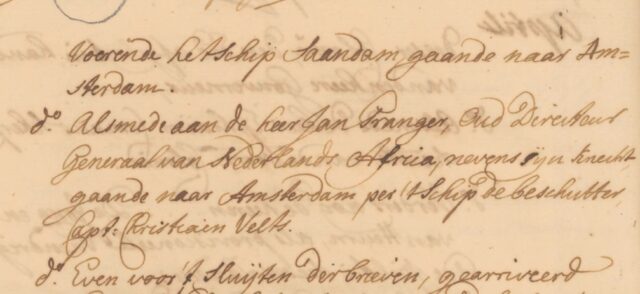 Voerende het Schip Saandam, gaande naar Am=
sterdam.
do. Alsmede aan de heer Jan Pranger, Oud Directeur
Generaal van Nederlands Africa, nevens sijn knecht
gaande naar Amsterdam per 't Schip de beschutter
Capt: Cristiaen Velts.
do. Even voor 't sluijten der brieven, gearriveerd